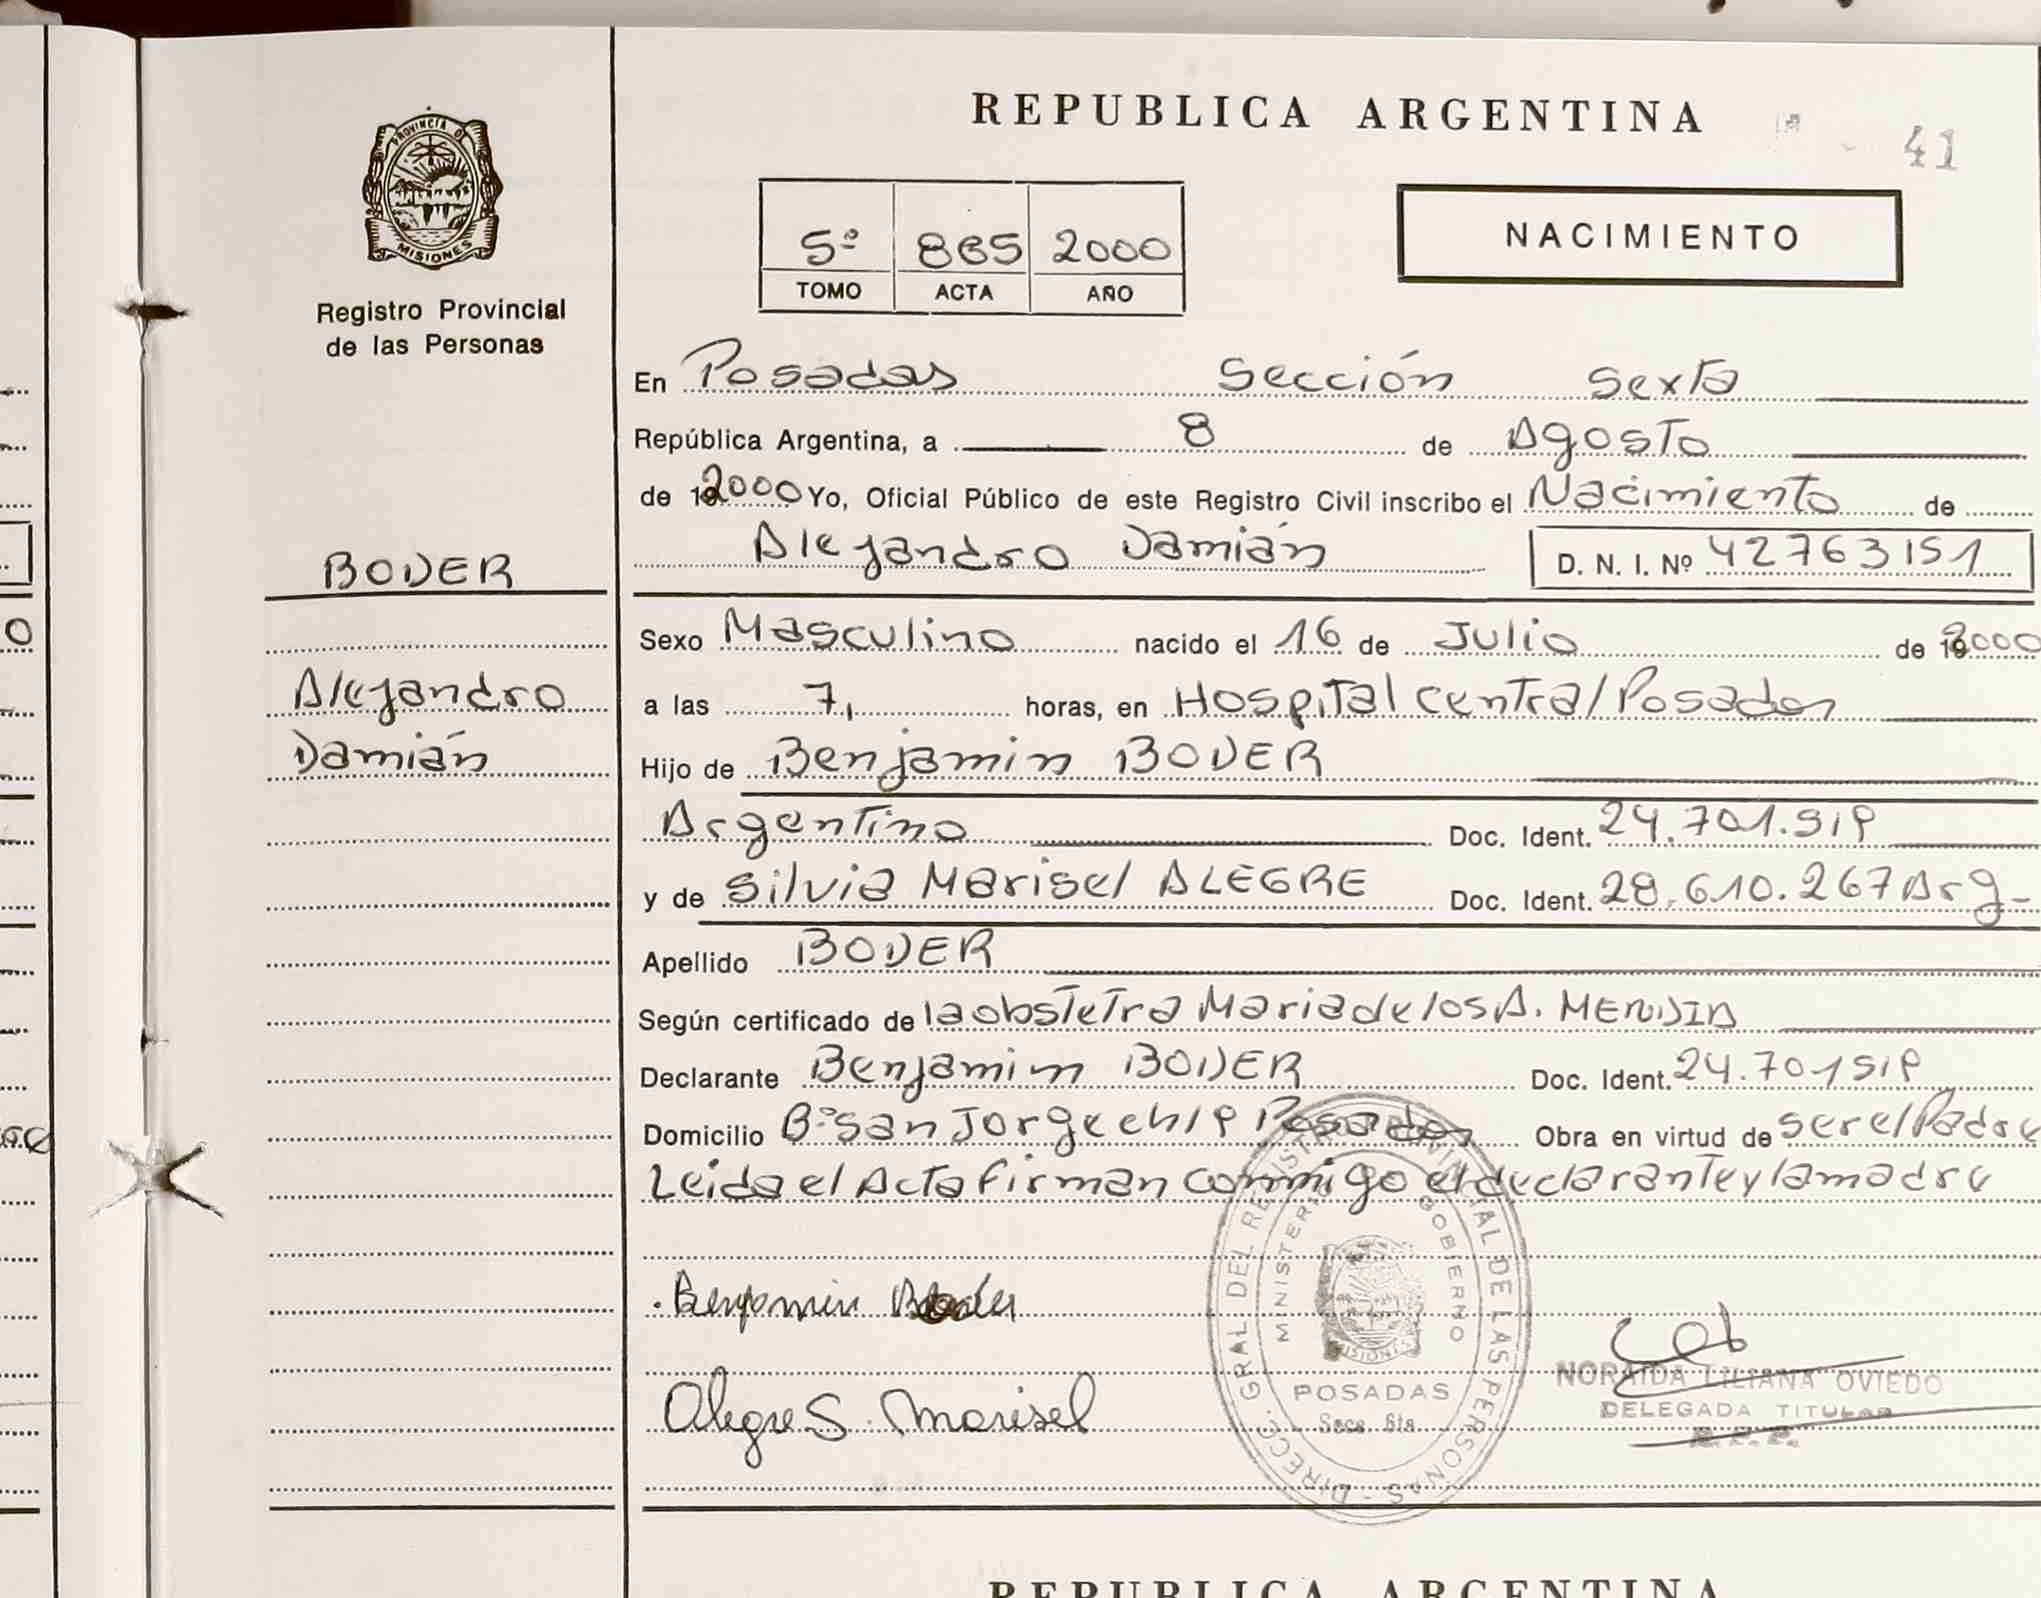 REPUBLICA ARGENTINA
41
PROVINCIA DE
MISIONES
Registro Provincial
de las Personas
5º 865 2000
TOMO ACTA AÑO
NACIMIENTO
En Posadas Sección Sexta
República Argentina, a 8 de Agosto
de 2000 Yo, Oficial Público de este Registro Civil inscribo el Nacimiento de
Alejandro Damián D. N. I. Nº 42763151
BODER
Alejandro
Damián
Sexo Masculino nacido el 16 de Julio de 2000
a las 7, horas, en Hospital central Posadas
Hijo de Benjamin BODER
Argentino Doc. Ident. 24.701.519
y de Silvia Marisel ALEGRE Doc. Ident. 28.610.267 Arg-
Apellido BODER
Según certificado de la obstetra Maria de los A.
Declarante Benjamin BODER Doc. Ident. 24.701519
Domicilio Bº San Jorge ch 19 Posadas Obra en virtud de ser el Padre
Leida el Acta firman conmigo el declarante y la madre
Benjamin Boder
Alegre S. Marisel
DIRECC. GRAL. DEL REGISTRO PROVINCIAL DE LAS PERSONAS
MINISTERIO GOBIERNO
MISIONES
POSADAS
Secc. 6ta.
NORAIDA LILIANA OVIEDO
DELEGADA TITULAR
REPUBLICA ARGENTINA